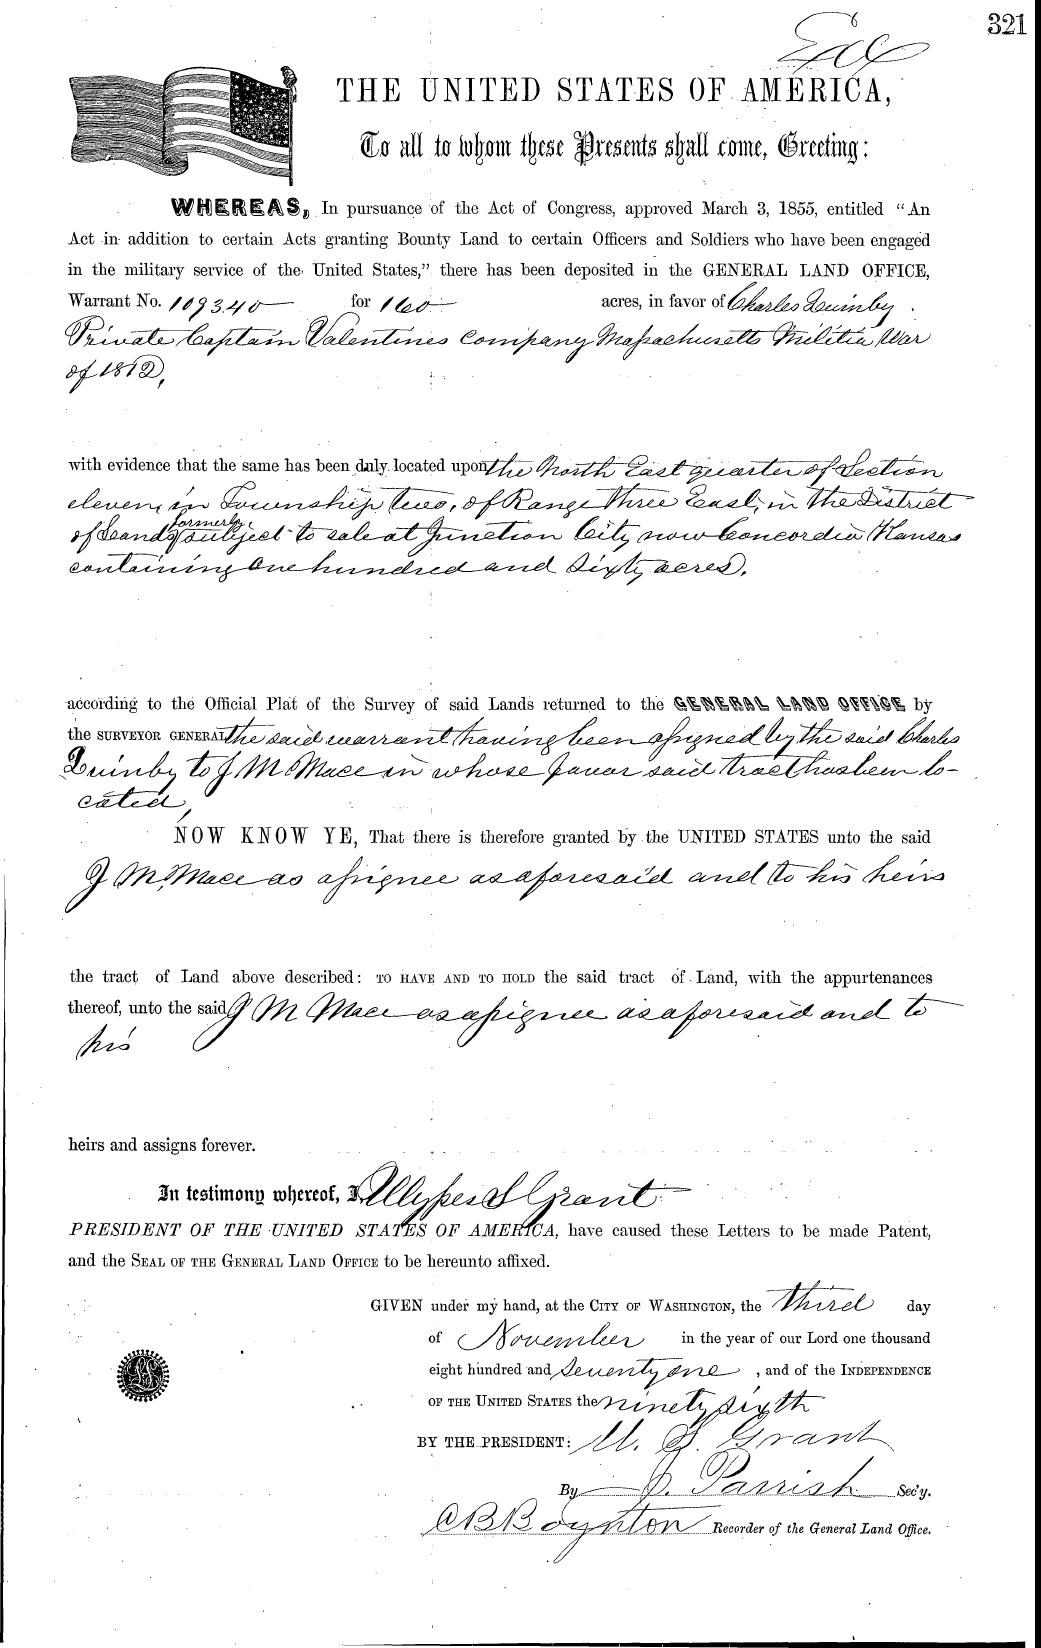 321
THE UNITED STATES OF AMERICA,
To all to whom these Presents shall come, Greeting:
WHEREAS, In pursuance of the Act of Congress, approved March 3, 1855, entitled "An
Act in addition to certain Acts granting Bounty Land to certain Officers and Soldiers who have been engaged
in the military service of the United States," there has been deposited in the GENERAL LAND OFFICE,
Warrant No. 109340 for 160 acres, in favor of Charles Quimby
Private Captain Valentines Company Massachusetts Militia War
of 1812,
with evidence that the same has been duly located upon the North East quarter of Section
eleven, in Township two, of Range three East, in the District
of Lands formerly subject to sale at Junction City now Concordia Kansas
containing One hundred and Sixty acres.
according to the Official Plat of the Survey of said Lands returned to the GENERAL LAND OFFICE by
the SURVEYOR GENERAL the said warrant having been assigned by the said Charles
Quimby to J M Mace in whose favor said tract has been lo-
cated,
NOW KNOW YE, That there is therefore granted by the UNITED STATES unto the said
J M Mace as assignee as aforesaid and to his heirs
the tract of Land above described: TO HAVE AND TO HOLD the said tract of Land, with the appurtenances
thereof, unto the said J M Mace as assignee as aforesaid and to
his
heirs and assigns forever.
In testimony whereof, I, Ulysses S Grant
PRESIDENT OF THE UNITED STATES OF AMERICA, have caused these Letters to be made Patent,
and the SEAL OF THE GENERAL LAND OFFICE to be hereunto affixed.
GIVEN under my hand, at the CITY OF WASHINGTON, the third day
of November in the year of our Lord one thousand
eight hundred and Seventy one, and of the INDEPENDENCE
OF THE UNITED STATES the ninety sixth
BY THE PRESIDENT: U. S. Grant
By J. Parrish Sec'y.
C B Boynton Recorder of the General Land Office.
LS